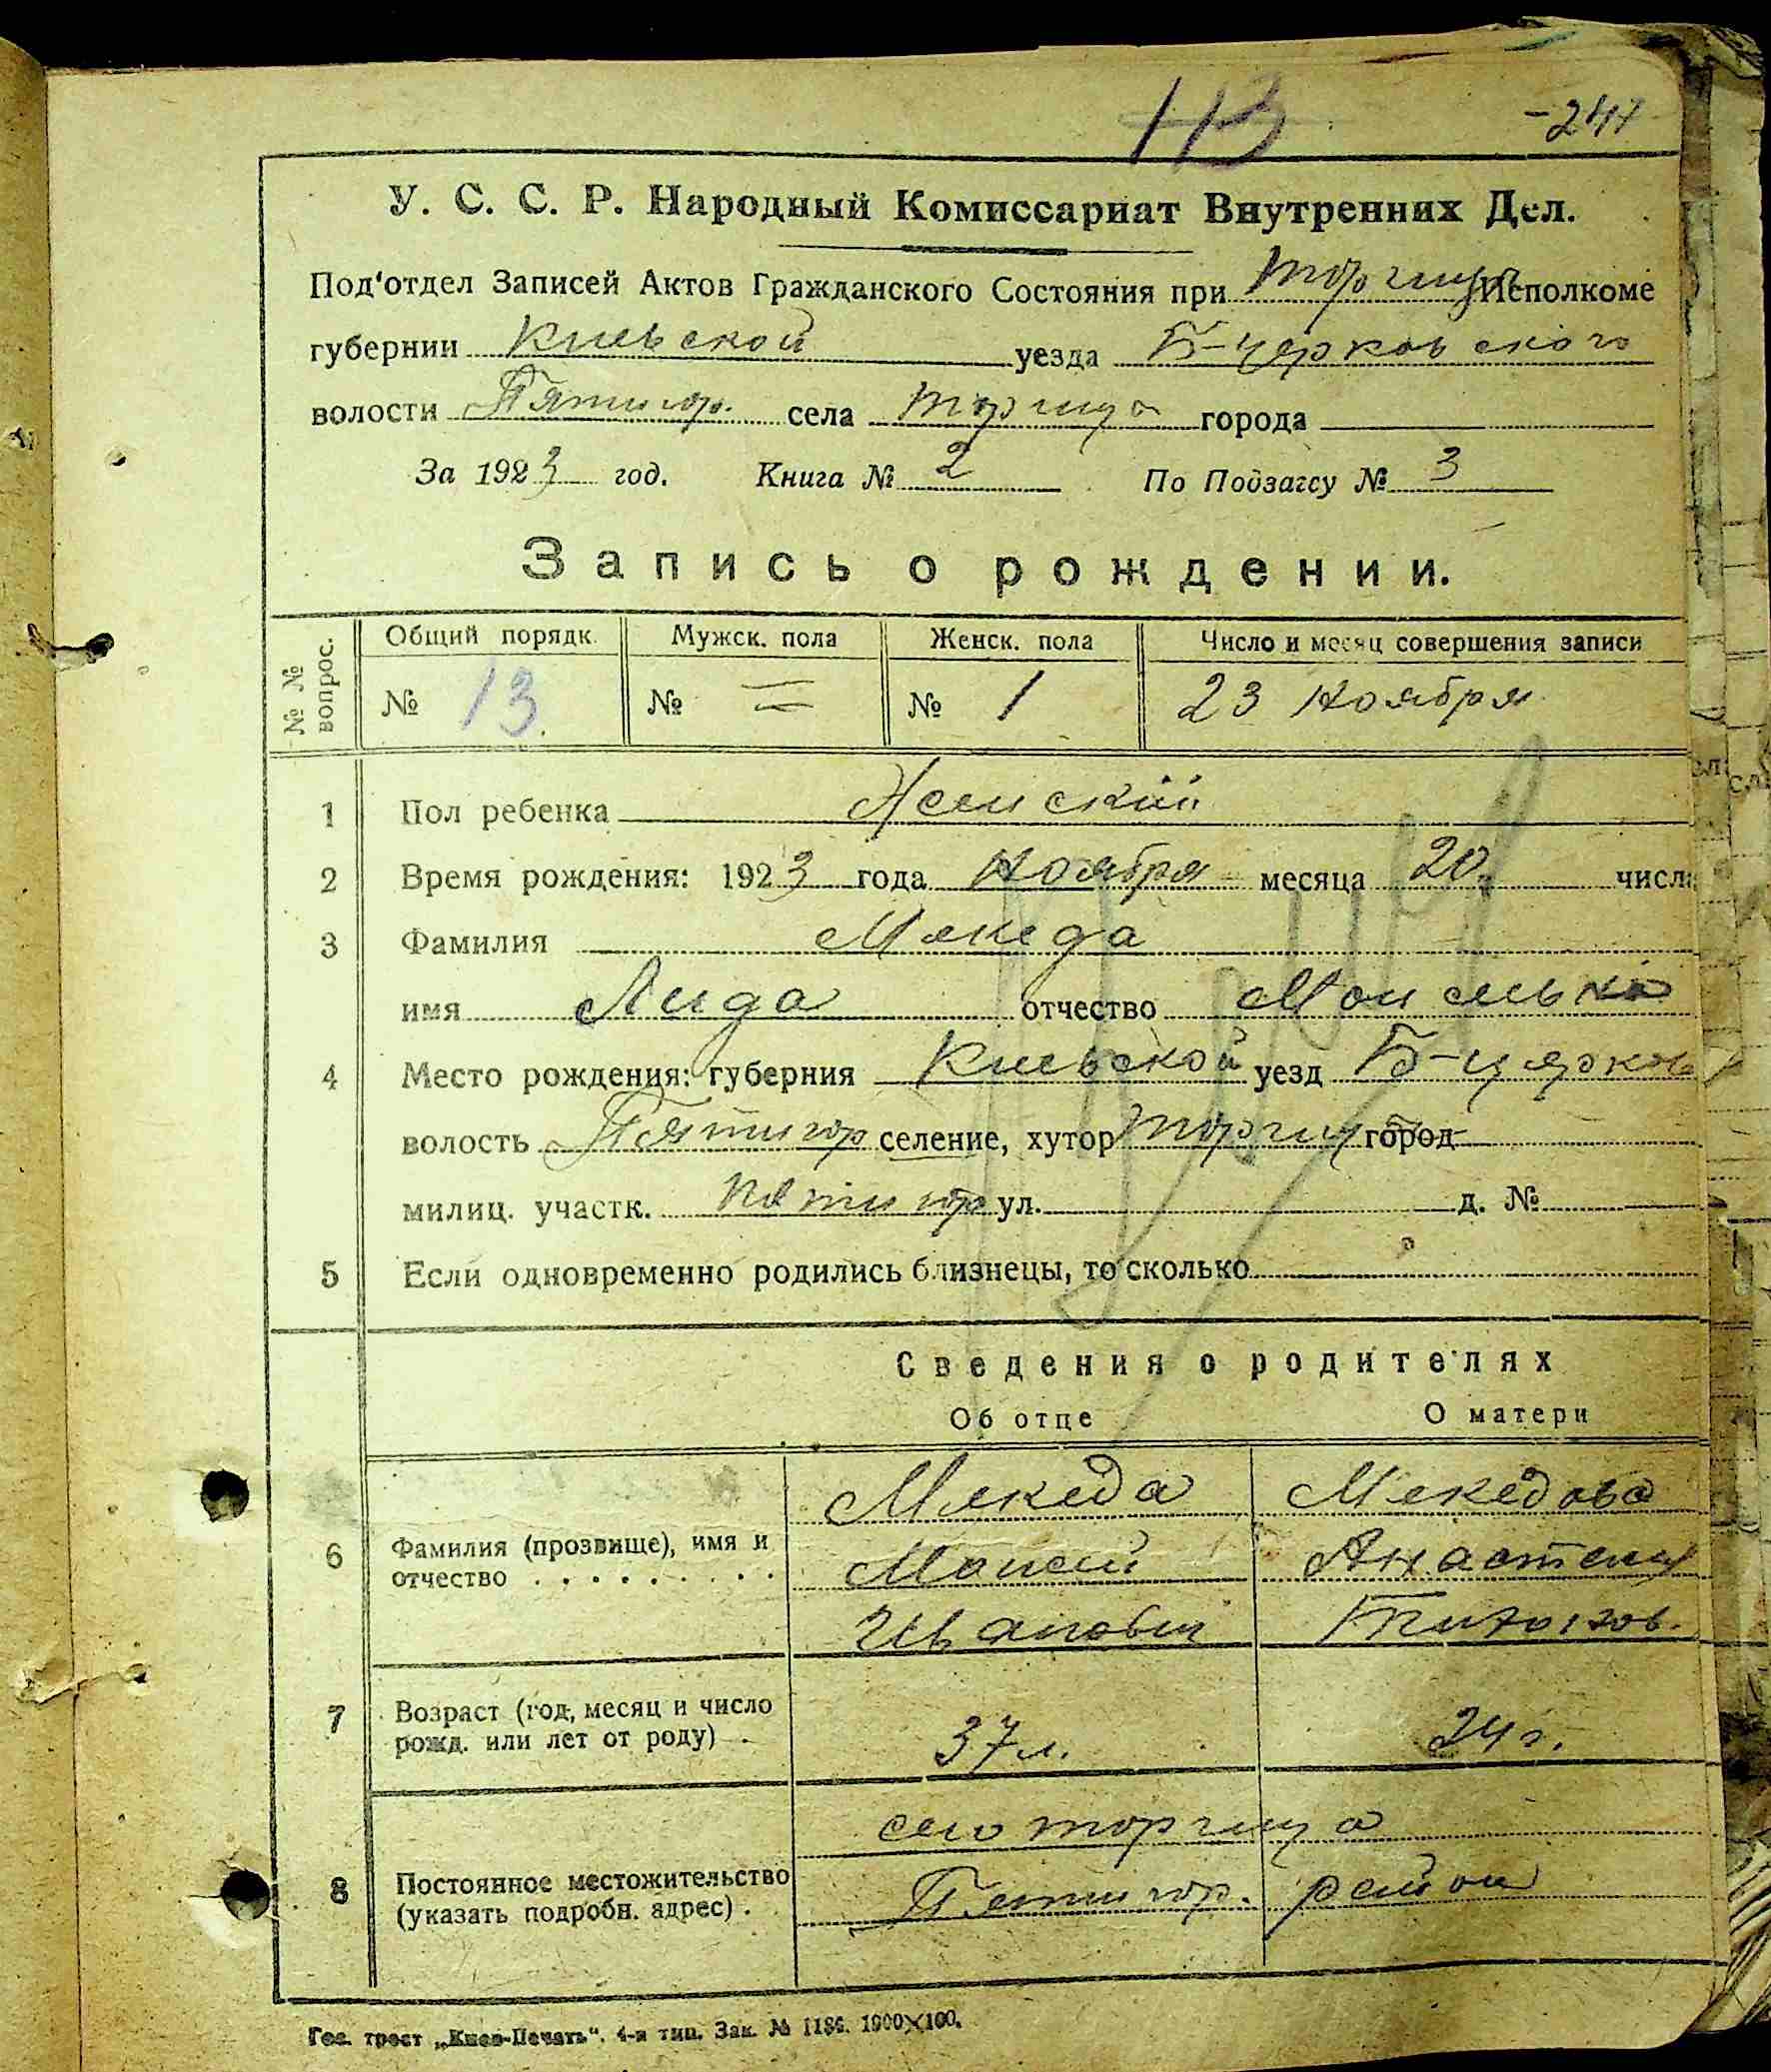 113 -244
У. С. С. Р. Народный Комиссариат Внутренних Дел.
Под'отдел Записей Актов Гражданского Состояния при Торчиц. Исполкоме
губернии Киевской уезда Б-Церковского
волости Пятигор. села Торчица города
За 1923 год. Книга № 2 По Подзагсу № 3
Запись о рождении.
№ № вопрос. Общий порядк. Мужск. пола Женск. пола Число и месяц совершения записи
№ 13. № = № 1 23 ноября
1 Пол ребенка Женский
2 Время рождения: 1923 года ноября месяца 20 числа
3 Фамилия Мекеда
имя Лида отчество
4 Место рождения: губерния Киевской уезд Б-Церков
волость Пятигор селение, хутор Торчиц город
милиц. участк. Пятигор ул. д. №
5 Если одновременно родились близнецы, то сколько
Сведения о родителях
Об отце О матери
Мекеда Мекедова
6 Фамилия (прозвище), имя и отчество . . . . . . . . . Моисей Анастасия
Иванович
7 Возраст (год, месяц и число рожд. или лет от роду) . 37 л. 24 г.
село Торчица
8 Постоянное местожительство (указать подробн. адрес) . Пятигор. район
Гос. трест „Киев-Печать". 4-я тип. Зак. № 1186. 1000×100.